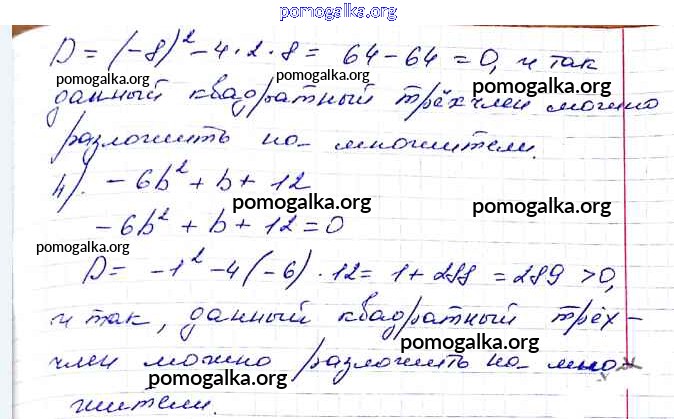 pomogalka.org
D = (-8)² - 4·2·8 = 64 - 64 = 0, и так
pomogalka.org pomogalka.org
данный квадратный трёхчлен можно
разложить на множители.
pomogalka.org
4). -6b² + b + 12
pomogalka.org pomogalka.org
-6b² + b + 12 = 0
pomogalka.org
D = -1² - 4(-6)·12 = 1 + 288 = 289 > 0,
и так, данный квадратный трёх-
pomogalka.org
член можно разложить на мно-
pomogalka.org
жители.
pomogalka.org